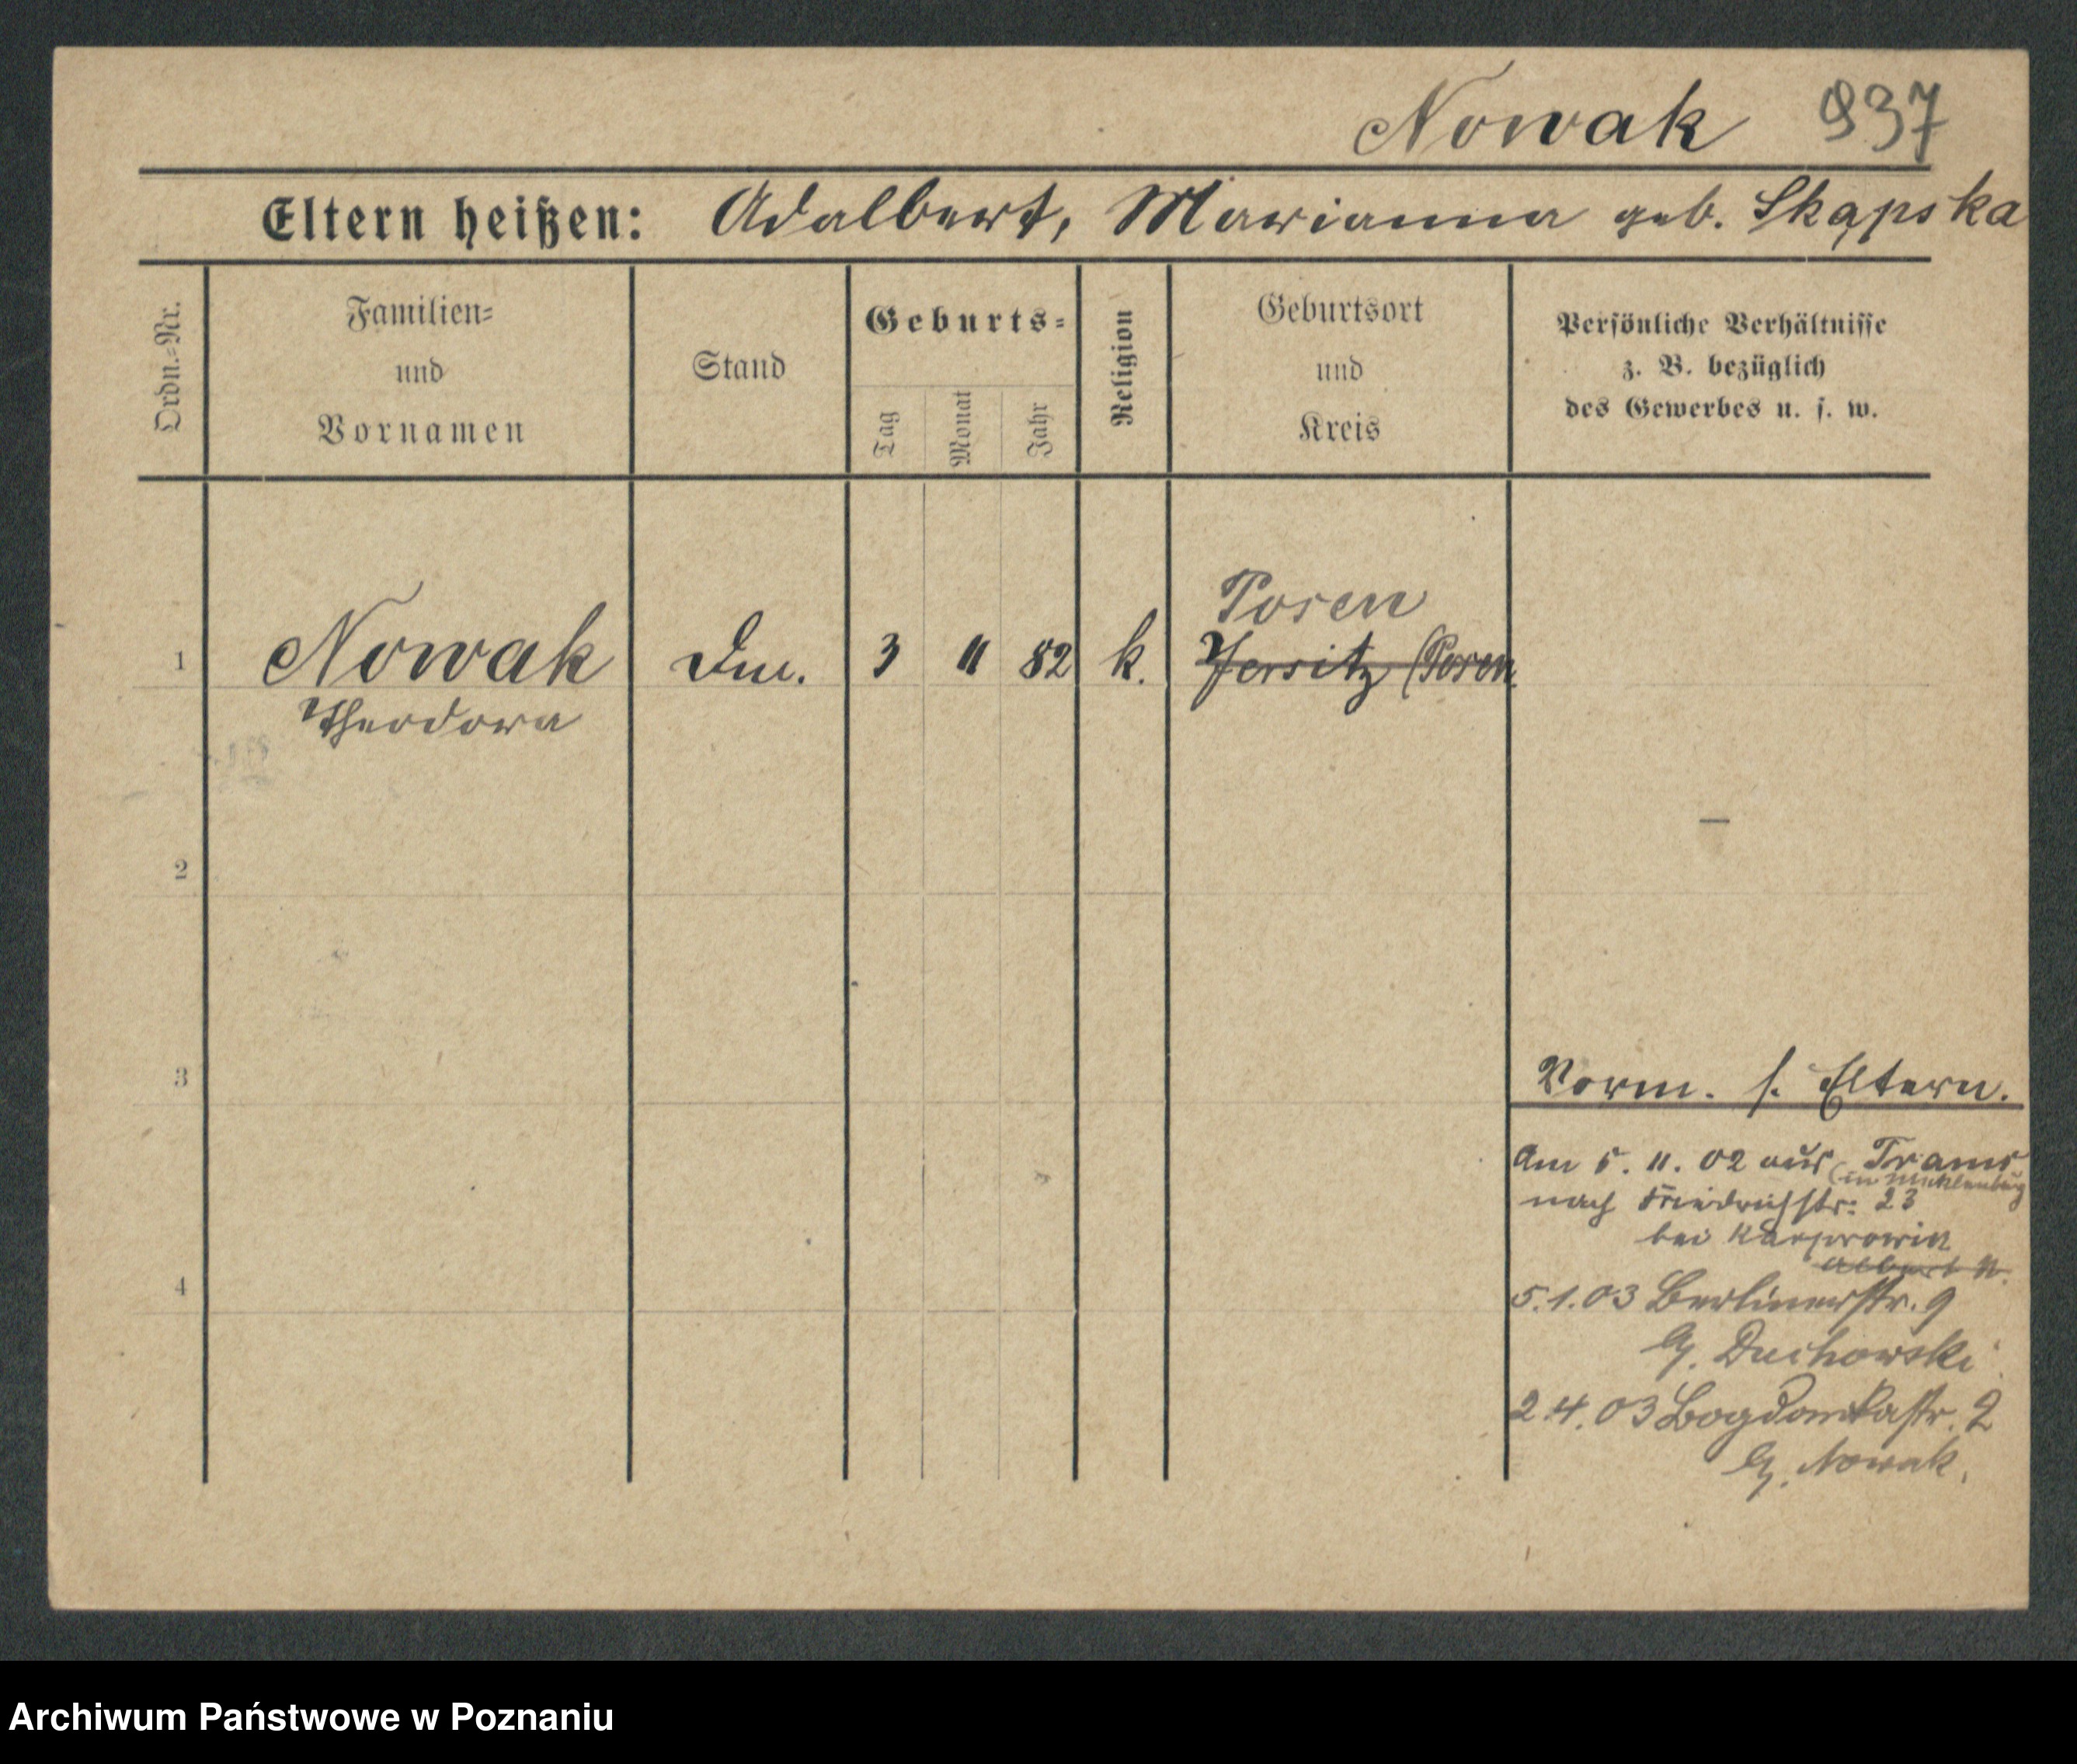 Nowak 937
Eltern heißen: Adalbert, Marianna geb. Skąpska
Ordn.-Nr.
Familien-
und
Vornamen
Stand
Geburts-
Tag
Monat
Jahr
Religion
Geburtsort
und
Kreis
Persönliche Verhältnisse
z. B. bezüglich
des Gewerbes u. s. w.
Posen
1 Nowak 3 11 82 k. Jersitz (Posen
Theodora
2
3
Vorm. s. Eltern.
Am 5. 11. 02 aus Trams
(in Mecklenburg
nach Friedrichstr: 23
bei
4
Albert N.
5.1.03 Berlinerstr. 9
b/. Duchowski
2.4.03 Bogdankastr. 2
b/. Nowak.
Archiwum Państwowe w Poznaniu